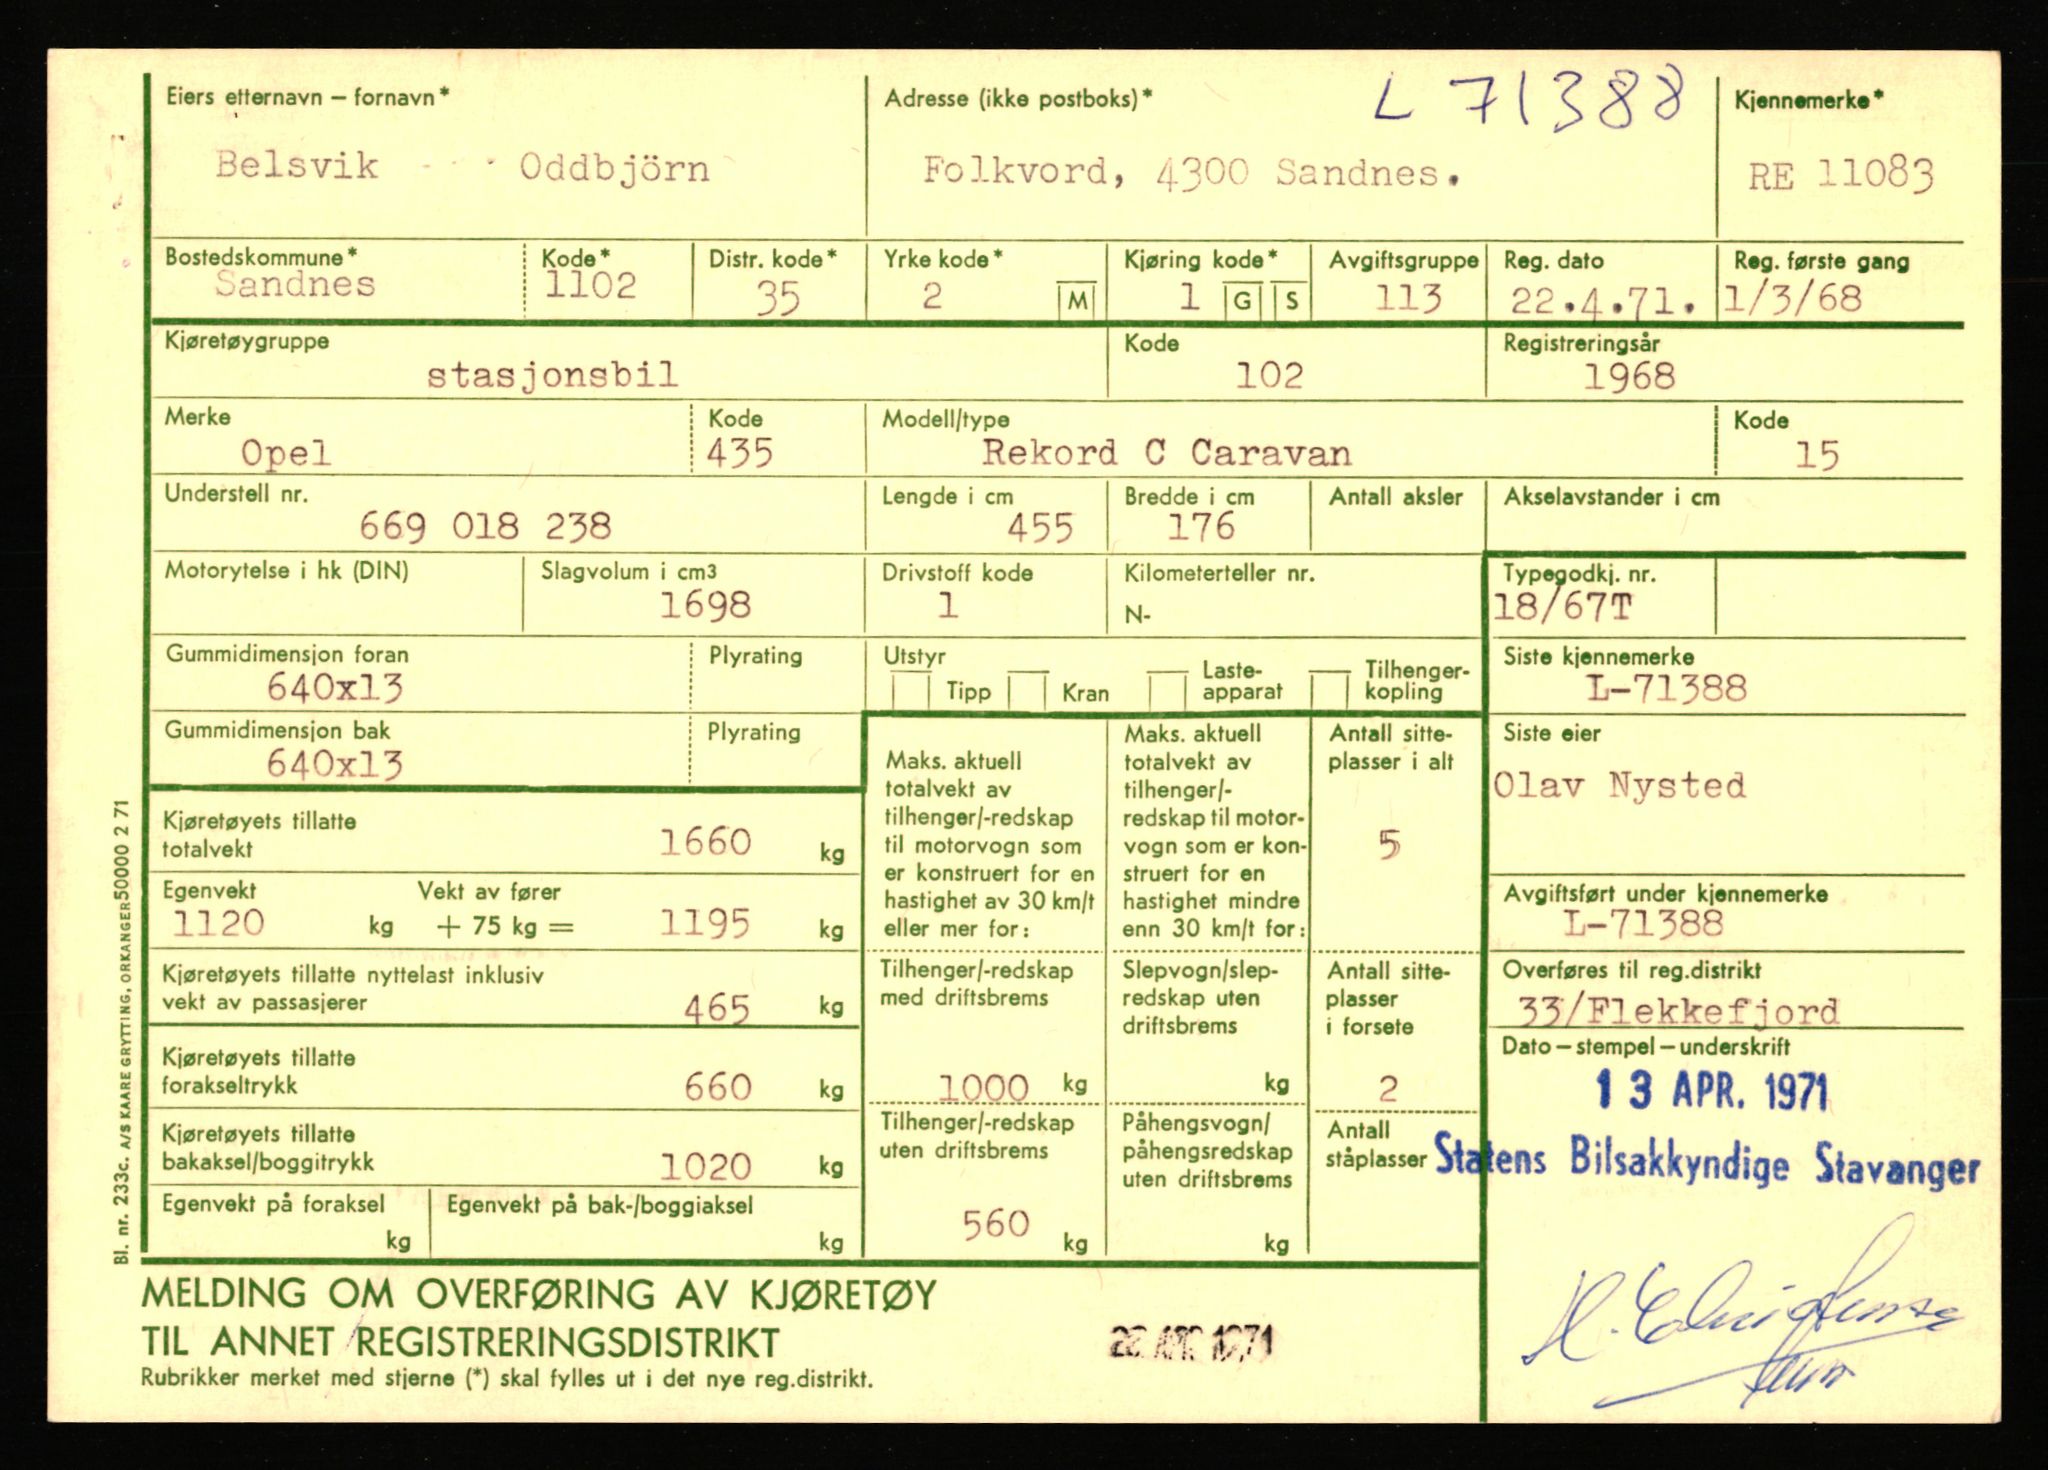 L 71388
Eiers etternavn – fornavn* Adresse (ikke postboks)* Kjennemerke*
Belsvik Oddbjörn Folkvord, 4300 Sandnes. RE 11083
Bostedskommune* Kode* Distr. kode* Yrke kode* Kjøring kode* Avgiftsgruppe Reg. dato Reg. første gang
Sandnes 1102 35 2 M 1 G S 113 22.4.71. 1/3/68
Kjøretøygruppe Kode Registreringsår
stasjonsbil 102 1968
Merke Kode Modell/type Kode
Opel 435 Rekord C Caravan 15
Understell nr. Lengde i cm Bredde i cm Antall aksler Akselavstander i cm
669 018 238 455 176
Motorytelse i hk (DIN) Slagvolum i cm3 Drivstoff kode Kilometerteller nr. Typegodkj. nr.
1698 1 N- 18/67T
Gummidimensjon foran Plyrating Utstyr Siste kjennemerke
640x13 Tipp Kran Laste-apparat Tilhenger-kopling L-71388
Gummidimensjon bak Plyrating
640x13
Maks. aktuell
totalvekt av
tilhenger/-redskap
til motorvogn som
er konstruert for en
hastighet av 30 km/t
eller mer for:
Maks. aktuell
totalvekt av
tilhenger/-
redskap til motor-
vogn som er kon-
struert for en
hastighet mindre
enn 30 km/t for:
Antall sitte-
plasser i alt
5
Siste eier
Olav Nysted
Kjøretøyets tillatte
totalvekt 1660 kg
Egenvekt Vekt av fører
1120 kg + 75 kg = 1195 kg
Avgiftsført under kjennemerke
L-71388
Kjøretøyets tillatte nyttelast inklusiv
vekt av passasjerer 465 kg
Tilhenger/-redskap
med driftsbrems
1000 kg
Slepvogn/slep-
redskap uten
driftsbrems
kg
Antall sitte-
plasser
i forsete
2
Overføres til reg.distrikt
33/Flekkefjord
Kjøretøyets tillatte
forakseltrykk 660 kg
Dato – stempel – underskrift
13 APR. 1971
Statens Bilsakkyndige Stavanger
Kjøretøyets tillatte
bakaksel/boggitrykk 1020 kg
Tilhenger/-redskap
uten driftsbrems
560 kg
Påhengsvogn/
påhengsredskap
uten driftsbrems
kg
Antall
ståplasser
Egenvekt på foraksel Egenvekt på bak-/boggiaksel
kg kg
MELDING OM OVERFØRING AV KJØRETØY
TIL ANNET REGISTRERINGSDISTRIKT
Rubrikker merket med stjerne (*) skal fylles ut i det nye reg.distrikt.
APR 1971
Bl. nr. 233c. A/S KAARE GRYTTING, ORKANGER 50000 2 71